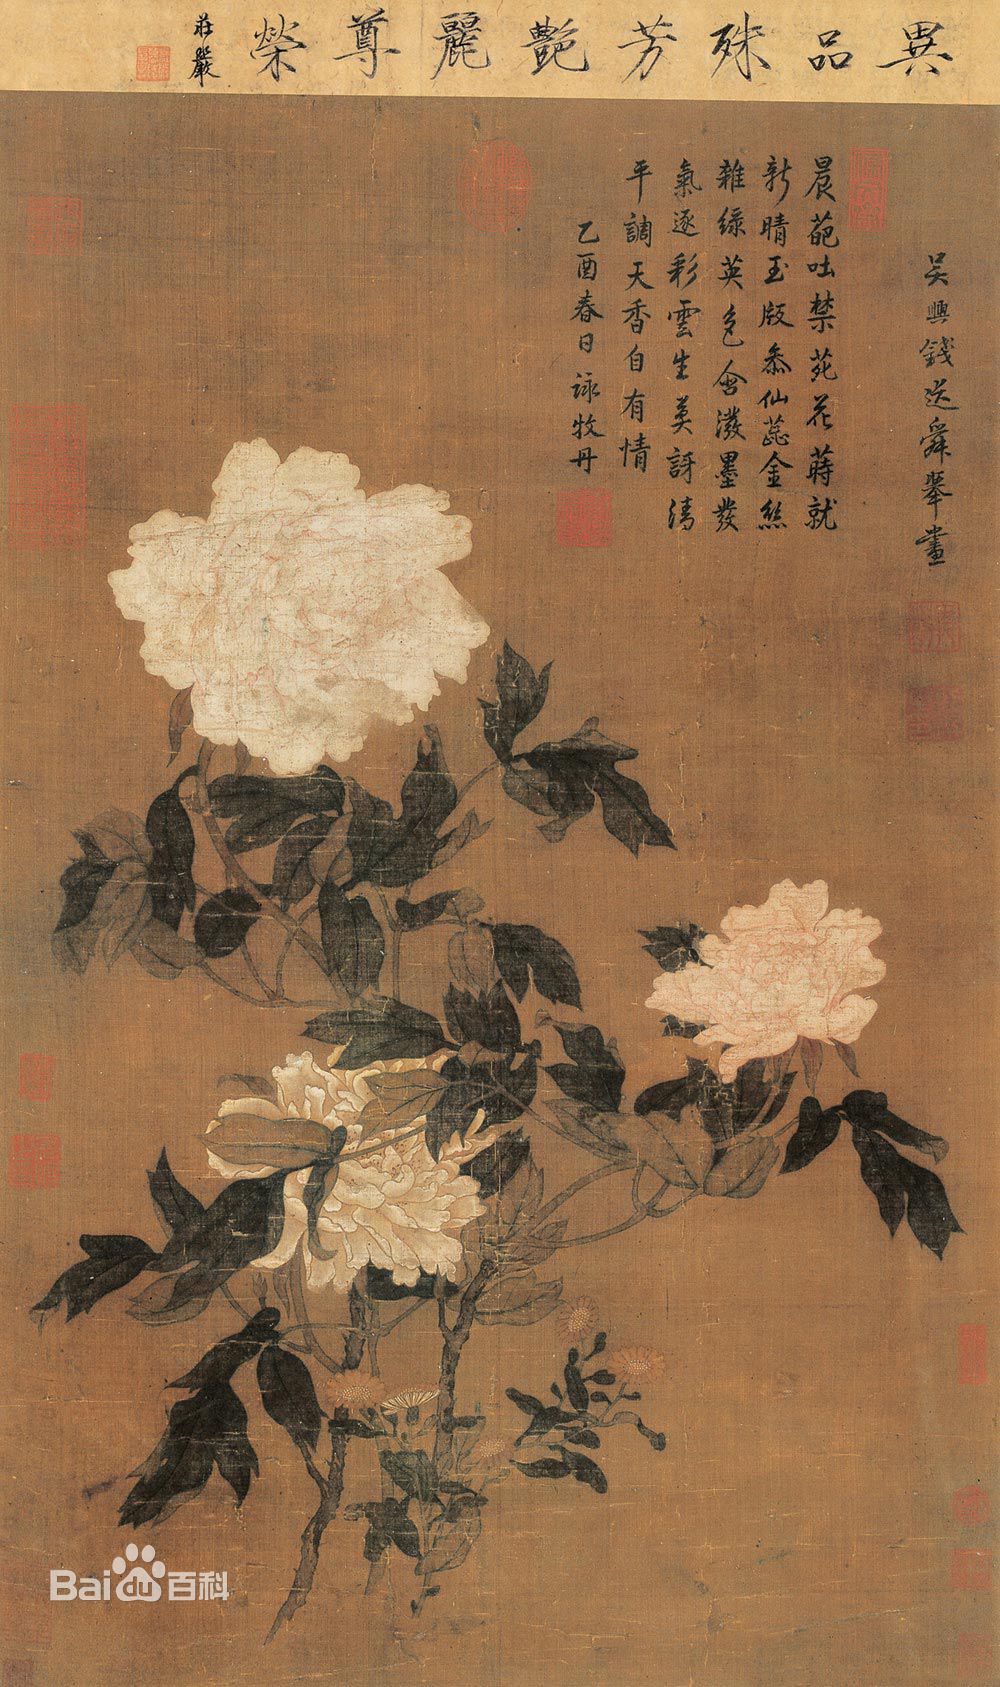 異品殊芳艷麗尊榮
莊嚴
吳興錢選舜舉畫
晨葩吐禁苑花蒔就
新晴玉版叅仙蕊金絲
雜綠英色含潑墨發
氣逐彩雲生莫訝清
平調天香自有情
乙酉春日詠牡丹
Bai du 百科